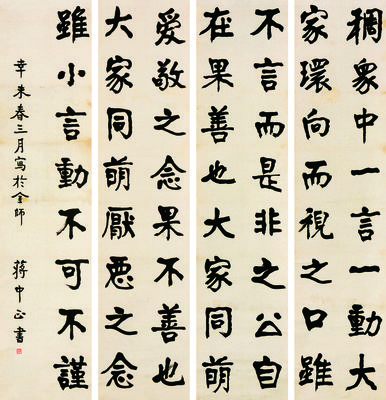 稠衆中一言一動大
家環向而視之口雖
不言而是非之公自
在果善也大家同萌
愛敬之念果不善也
大家同萌厭惡之念
雖小言動不可不謹
辛未春三月寫於金師
蔣中正書